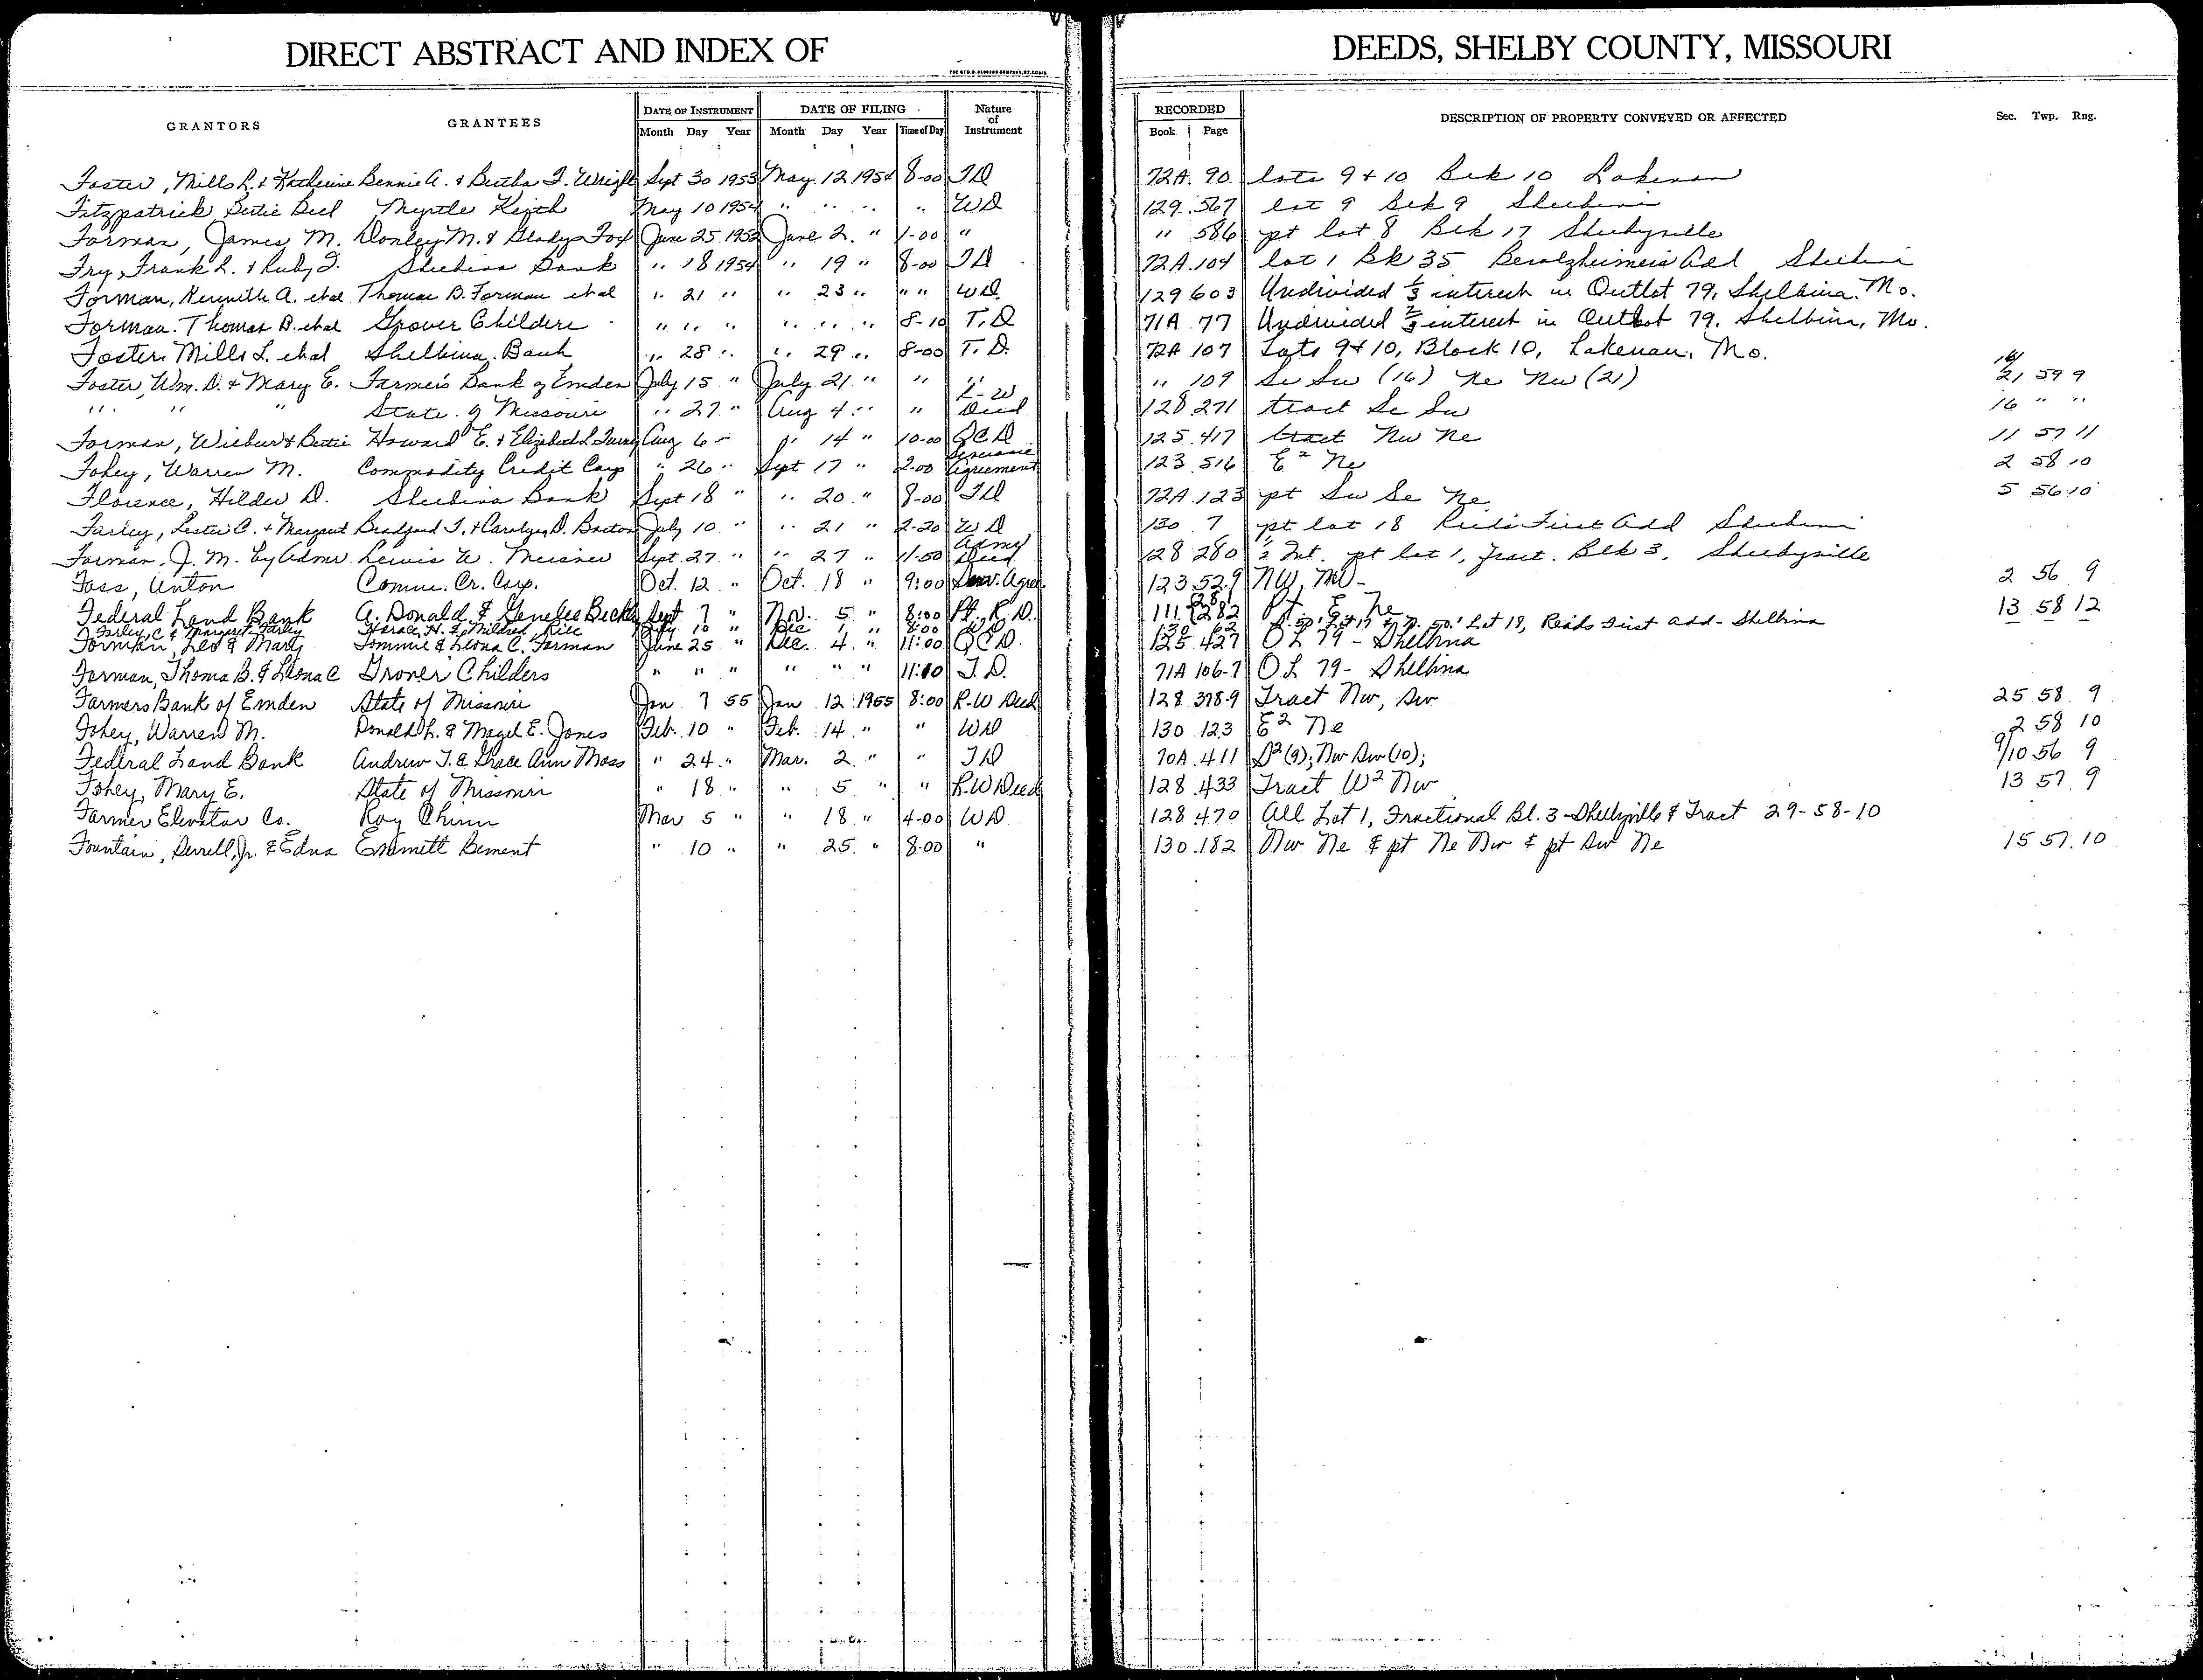 DIRECT ABSTRACT AND INDEX OF DEEDS, SHELBY COUNTY, MISSOURI
GRANTORS GRANTEES DATE OF INSTRUMENT DATE OF FILING Nature of Instrument RECORDED DESCRIPTION OF PROPERTY CONVEYED OR AFFECTED Sec. Twp. Rng.
Month Day Year Month Day Year Time of Day Book Page
Foster, Mills L. & Katherine Bennie A. & Bertha F. Wright Sept 30 1953 May 12 1954 8-00 TD 72A. 90 lots 9 + 10 Blk 10 Lakenan
Fitzpatrick Myrtle Keith May 10 1954 " " " " WD 129.567 lot 9 Blk 9 Shelbina
Forman, James M. Donley M. & Gladys Fox June 25 1952 June 2 " 1-00 " " 586 pt lot 8 Blk 17 Shelbyville
Fry, Frank L. & Ruby F. Shelbina Bank " 18 1954 " 19 " 8-00 TD 72A.104 lot 1 Bk 35 Berolzheimers Add Shelbina
Forman, A. et al Thomas B. Forman et al " 21 " " 23 " " " WD. 129 603 Undivided 1/3 interest in Outlot 79, Shelbina. Mo.
Forman. Thomas B. et al Grover Childers " " " " " " 8-10 T.D 71A 77 Undivided 2/3 interest in Outlot 79. Shelbina, Mo.
Foster, Mills L. et al Shelbina Bank " 28 " " 29 " 8-00 T.D. 72A 107 Lots 9 & 10, Block 10, Lakenan, Mo.
Foster, Wm. D. & Mary E. Farmers Bank of Emden July 15 " July 21 " " " " 109 Se Sw (16) Ne Nw (21) 16/21 59 9
" " " State of Missouri " 27 " Aug 4 " " R-W Deed 128.271 tract Se Sw 16 " "
Forman, Wilbur & Bettie Howard E. & Elizabeth L. Aug 6 " " 14 " 10-00 QCD 125.417 tract Nw Ne 11 57 11
Fohey, Warren M. Commodity Credit Corp " 26 " Sept 17 " 2-00 Severance Agreement 123.516 E² Ne 2 58 10
Florence, Hilder D. Shelbina Bank Sept 18 " " 20 " 8-00 TD 72A.123 pt Sw Se Ne 5 56 10
Farley, Lester C. & Margaret Bradford T. & Carolyn D. Barton July 10 " " 21 " 2-20 WD 130 7 pt lot 18 Reids First Add Shelbina
Forman, J. M. by Admr Lewis W. Meisner Sept. 27 " " 27 " 11-50 Admr Deed 128 280 1/2 Int. pt lot 1, Fract. Blk 3, Shelbyville
Foss, Anton Comm. Cr. Corp. Oct. 12 " Oct. 18 " 9:00 Sev. Agree. 123 529 NW, NW- 2 56 9
Federal Land Bank A. Donald & Genelee Sept 7 " Nov. 5 " 8:00 Pt. R.D. 111.{281 282 Pt. E Ne 13 58 12
Farley, C & Margaret Farley Horace H. & Mildred Rice July 10 " Dec 1 " 8:00 WD 130 62 S. 50' Lot 17 & N. 50' Lot 18, Reids First add- Shelbina
Forman, Leo & Mary Tommie & Leona C. Forman June 25 " Dec. 4 " 11:00 QCD. 125.427 OL 79 - Shelbina
Forman, Thoma B. & Leona C Grover Childers " " " " " " 11:10 T.D. 71A 106-7 OL 79- Shelbina
Farmers Bank of Emden State of Missouri Jan 7 55 Jan 12 1955 8:00 R-W Deed 128.378-9 Tract Nw, Sw 25 58 9
Fohey, Warren M. Donald L. & Magel E. Jones Feb. 10 " Feb. 14 " " WD 130 123 E² Ne 2 58 10
Federal Land Bank Andrew J. & Grace Ann Moss " 24 " Mar. 2 " " TD 70A.411 S²(9); Nw Sw (10); 9/10 56 9
Fohey, Mary E. State of Missouri " 18 " " 5 " " R.W Deed 128.433 Tract W² Nw 13 57 9
Farmer Elevator Co. Roy Chinn Mar 5 " " 18 " 4-00 WD 128.470 All Lot 1, Fractional Bl. 3 - Shelbyville & Tract 29-58-10
Fountain, Derrell, Jr. & Edna Emmett Bement " 10 " " 25 " 8-00 " 130.182 Nw Ne & pt Ne Nw & pt Sw Ne 15 57 10